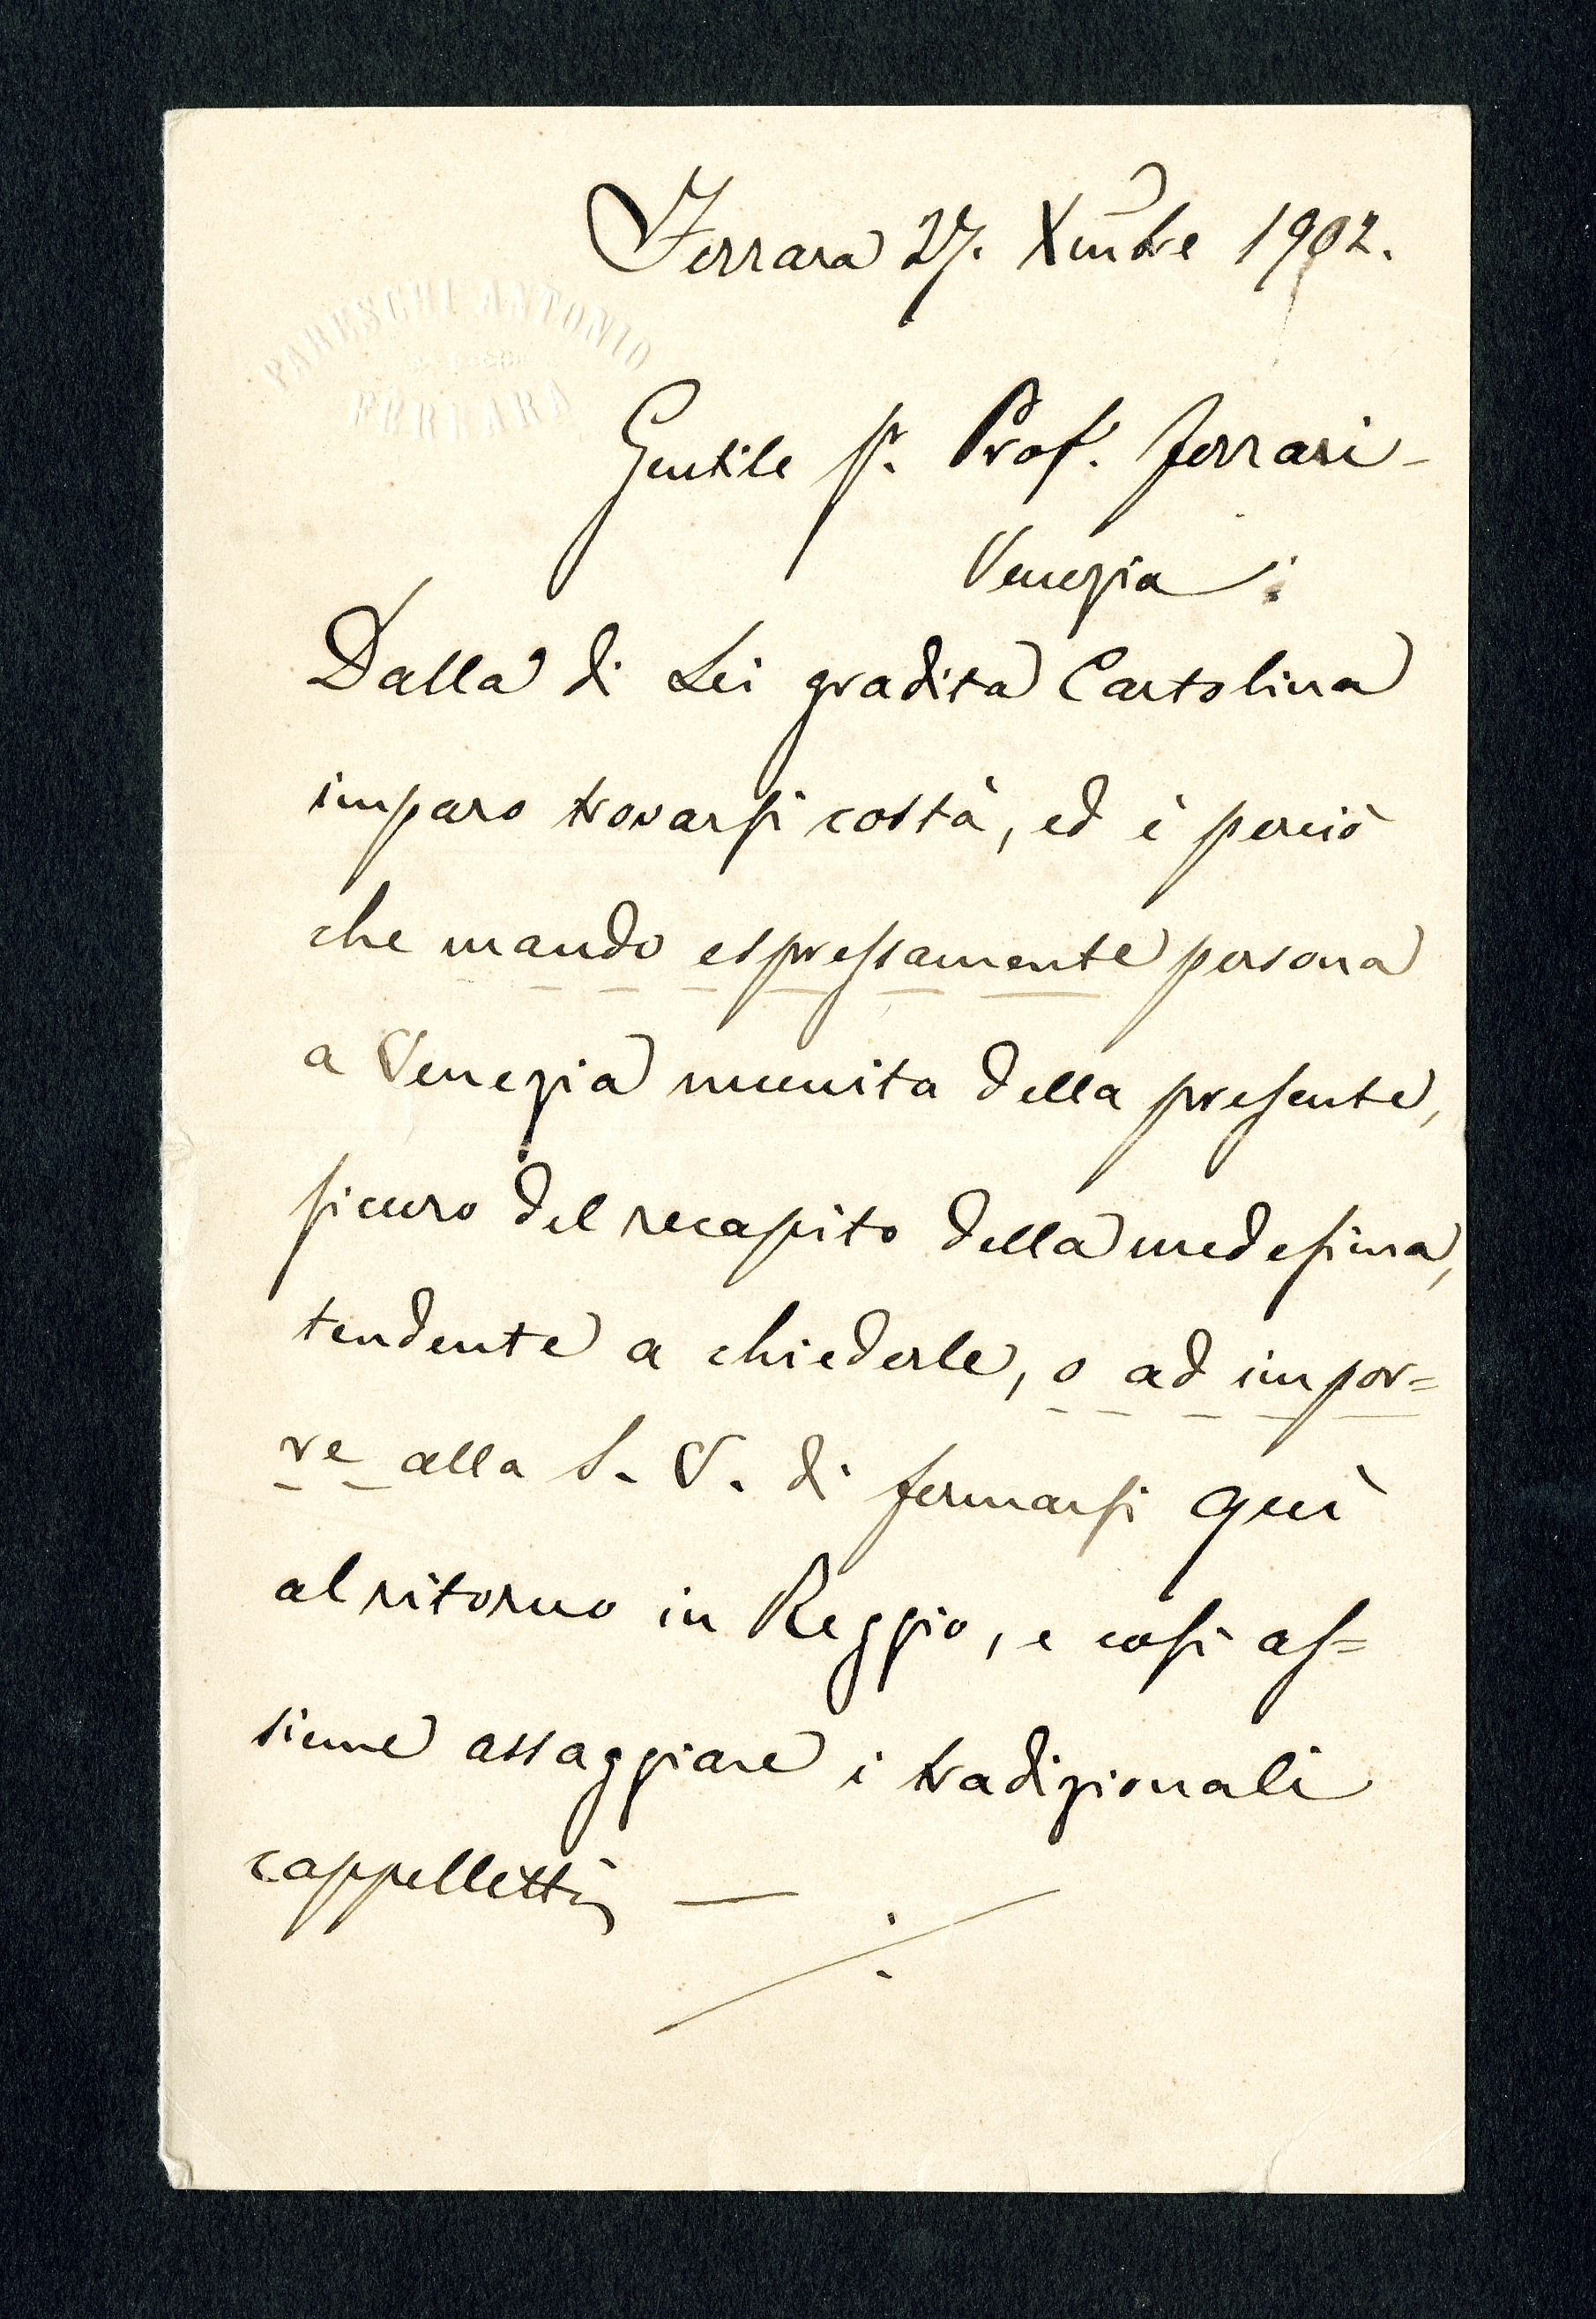 Ferrara 27. Xmbre 1902.
PARESCHI ANTONIO
FERRARA
Gentile Sr. Prof. Ferrari -
Venezia :
Dalla di Lei gradita Cartolina
imparo trovarsi costà, ed è perciò
che mando espressamente persona
a Venezia munita della presente,
sicuro del recapito della medesima,
tendente a chiederle, o ad impor=
re alla S. V. di fermarsi quì
al ritorno in Reggio, e così as=
sieme assaggiare i tradizionali
cappelletti —